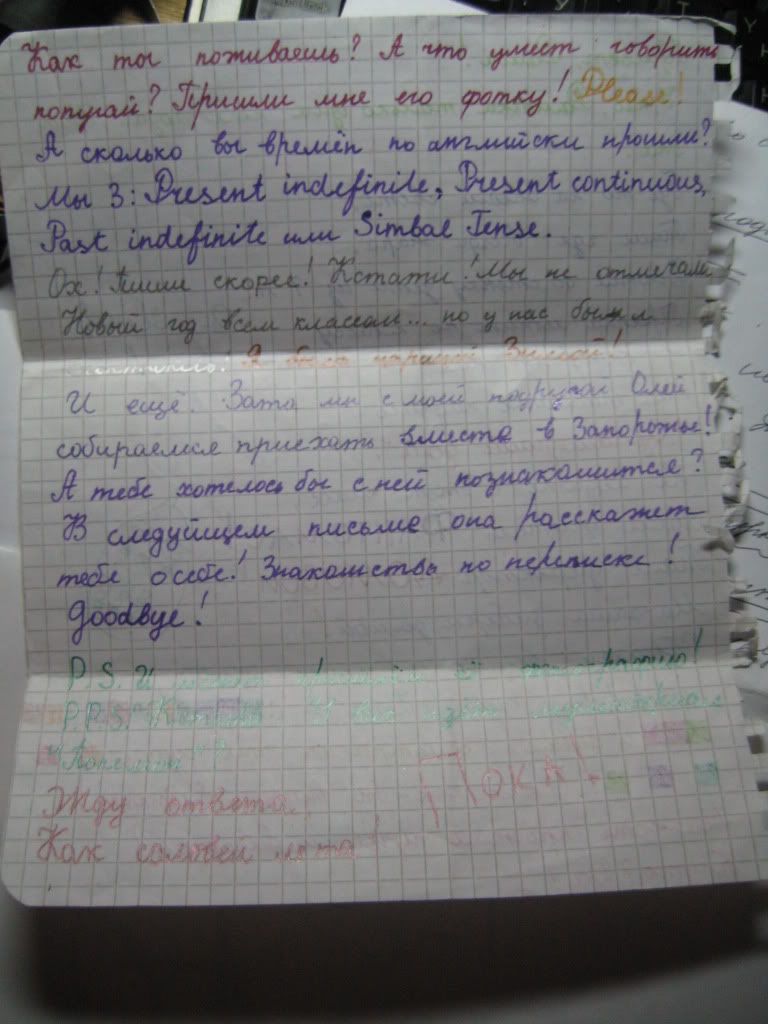 Как ты поживаешь? А что умеет говорить
попугай? Пришли мне его фотку! Please!
А сколько вы времён по английски прошли?
Мы 3: Present indefinite, Present continuous,
Past indefinite или Simbal Tense.
Ох! Пиши скорее! Кстати! Мы не отмечали
Новый год всем классом... но у нас были
Я была Зимой!
И ещё. Зато мы с моей подругой Олей
собираемся приехать вместе в Запорожье!
А тебе хотелось бы с ней познакомится?
В следуйщем письме она расскажет
тебе о себе! Знакомства по переписке!
Goodbye!
P.S. И
P.P.S. Кстати. У вас идёт
Пока!
Жду ответа,
Как соловей лета!